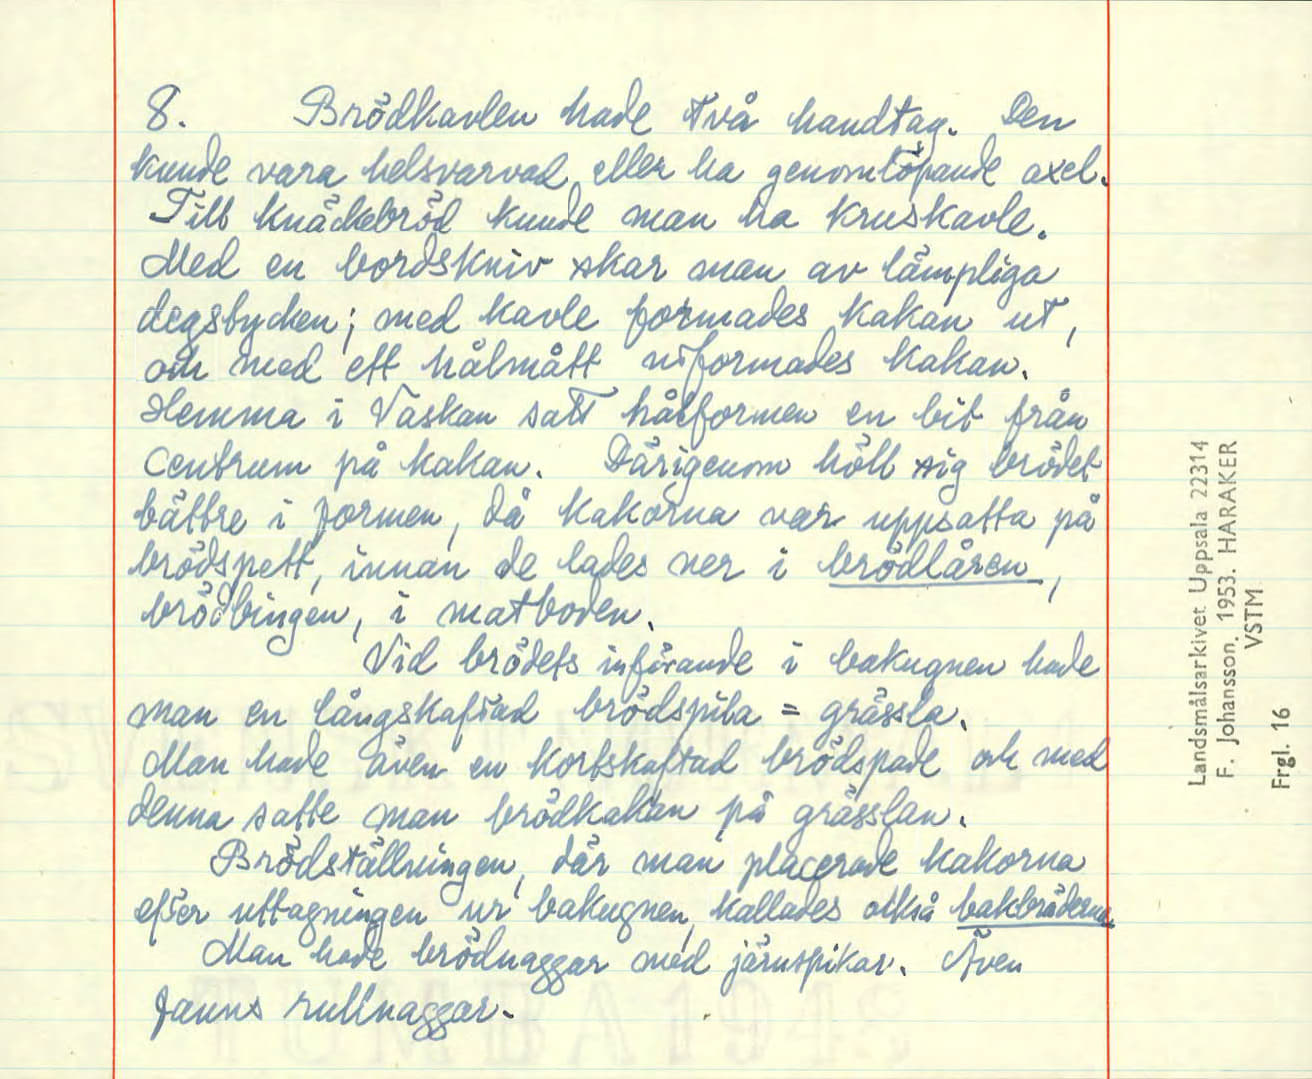 8. Brödkavlen hade två handtag. Den
kunde vara helsvarvad eller ha genomlöpande axel.
Till knäckebröd kunde man ha kruskavle.
Med en bordskniv skar man av lämpliga
degstycken; med kavle formades kakan ut,
och med ett hålmått utformades kakan.
Hemma i Vaskan satt hålformen en bit från
centrum på kakan. Därigenom höll sig brödet
bättre i formen, då kakorna var uppsatta på
brödspett, innan de lades ner i brödlåren,
brödbingen, i matboden.
Vid brödets införande i bakugnen hade
man en långskaftad brödspila = grässla.
Man hade även en kortskaftad brödspade och med
denna satte man brödkakan på grässlan.
Brödställningen, där man placerade kakorna
efter uttagningen ur bakugnen, kallades också bakbräderne.
Man hade brödnaggar med järnspikar. Även
fanns rullnaggar.
Landsmålsarkivet Uppsala 22314
F. Johansson. 1953. HARAKER
VSTM
Frgl. 16
TUMBA 1943